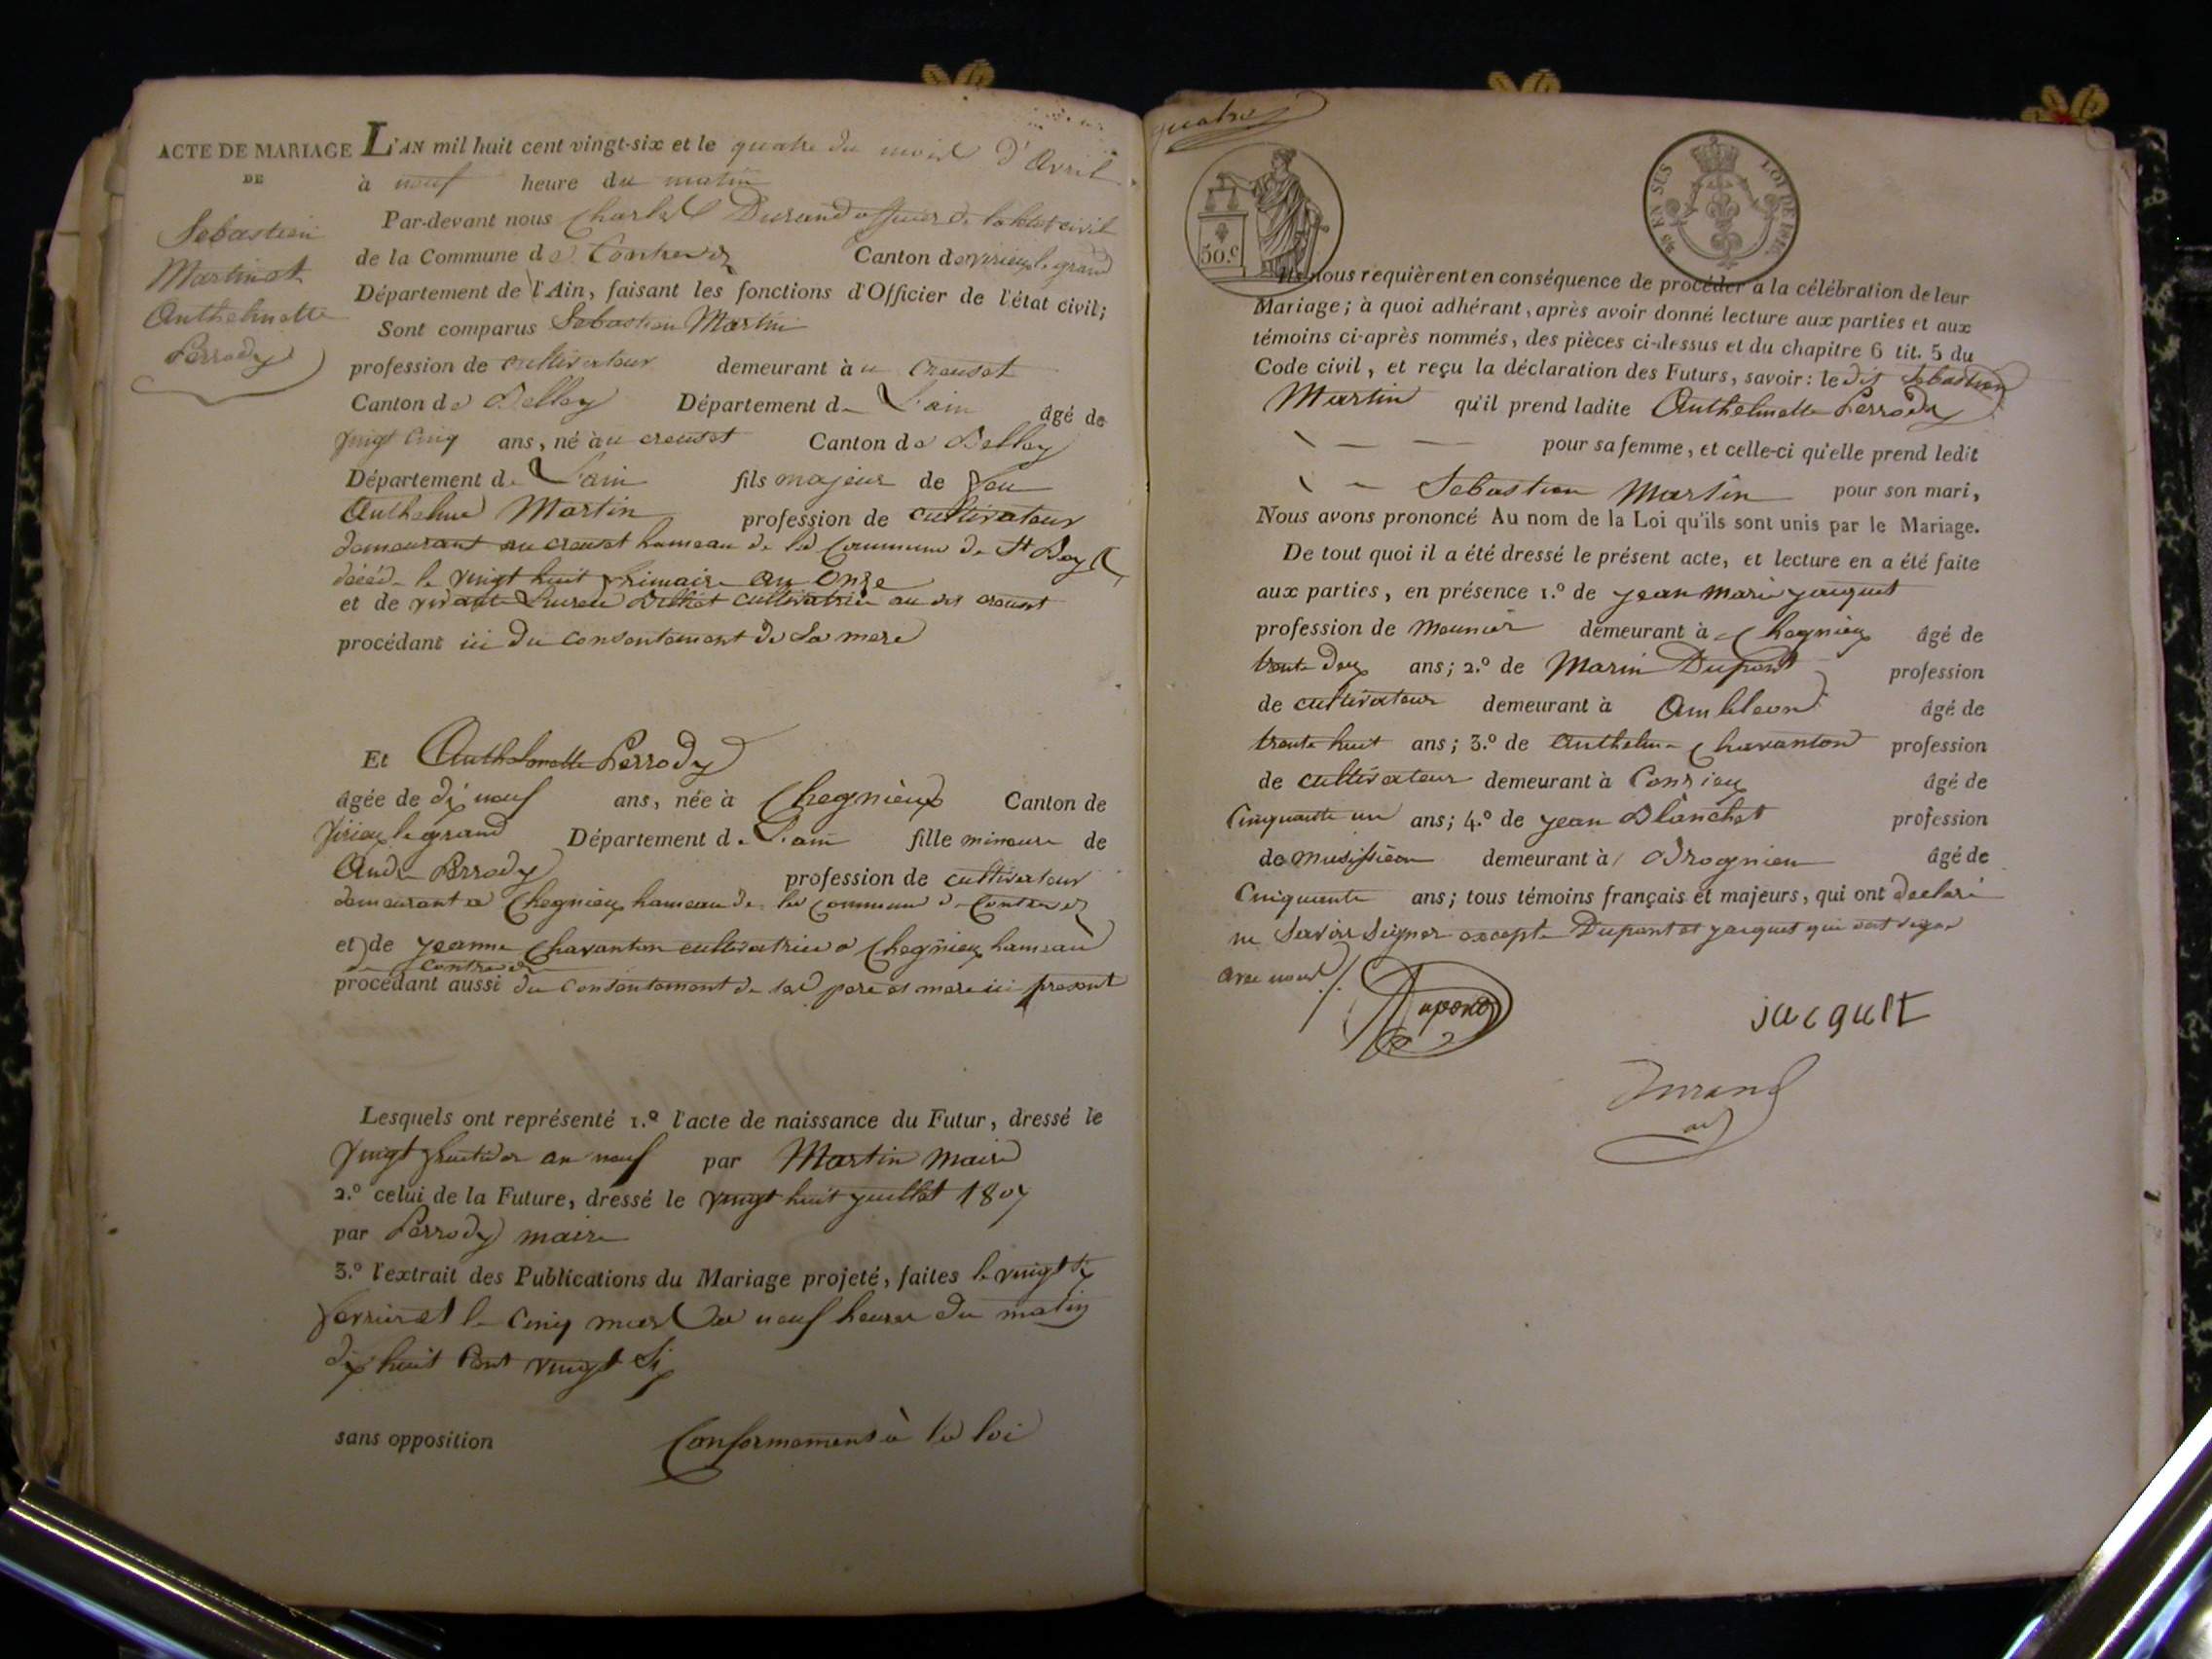 ACTE DE MARIAGE
DE
Sebastien
Martin et
Anthelmette
Perrody
L'AN mil huit cent vingt-six et le quatre du mois d'Avril
à neuf heure du matin
Par-devant nous Charles Durand officier de l'état civil
de la Commune de Contrevoz Canton de virieux le grand
Département de l'Ain, faisant les fonctions d'Officier de l'état civil;
Sont comparus Sebastien Martin
profession de cultivateur demeurant à u creuset
Canton de Belley Département de L'ain âgé de
vingt cinq ans, né àu creuset Canton de Belley
Département de L'ain fils majeur de feu
Anthelme Martin profession de cultivateur
demeurant au creuset hameau de la Commune de St
décédé le vingt huit frimaire an onze
et de vivante cultivatrice au dit creuset
procédant ici du consentement de sa mere
Et Anthelmette Perrody
âgée de dix neuf ans, née à Chegnieux Canton de
Virieux le grand Département de L'ain fille mineure de
André Perrody profession de cultivateur
demeurant a Chegnieux hameau de la commune de Contrevoz
et de jeanne Chavanton cultivatrice a Chegnieux hameau
de Contrevoz
procédant aussi du consentement de ses pere et mere ici present
Lesquels ont représenté 1.º l'acte de naissance du Futur, dressé le
Vingt fructidor an neuf par Martin maire
2.º celui de la Future, dressé le vingt huit juillet 1807
par Perrody maire
3.º l'extrait des Publications du Mariage projeté, faites le vingt six
fevrier et le cinq mars a neuf heures du matin
dix huit Cent vingt Six
sans opposition Conformement à la loi
quatre
50.C
EN SUS LOI DE 1816
Ils nous requièrent en conséquence de procéder à la célébration de leur
Mariage; à quoi adhérant, après avoir donné lecture aux parties et aux
témoins ci-après nommés, des pièces ci-dessus et du chapitre 6 tit. 5 du
Code civil, et reçu la déclaration des Futurs, savoir: le dit Sebastien
Martin qu'il prend ladite Anthelmette Perrody
pour sa femme, et celle-ci qu'elle prend ledit
Sebastien Martin pour son mari,
Nous avons prononcé Au nom de la Loi qu'ils sont unis par le Mariage.
De tout quoi il a été dressé le présent acte, et lecture en a été faite
aux parties, en présence 1.º de jean Marie jacquet
profession de Meunier demeurant à Chegnieux âgé de
trente deux ans; 2.º de Marin Dupont profession
de cultivateur demeurant à Ambleon âgé de
trente huit ans; 3.º de Anthelme Chavanton profession
de cultivateur demeurant à Conzieu âgé de
Cinquante un ans; 4.º de jean Blanchet profession
de musissien demeurant à Brognieu âgé de
Cinquante ans; tous témoins français et majeurs, qui ont declaré
ne Savoir Seigner excepte Dupont et jacquet qui ont signé
avec nous
Dupond
jacquet
Durand